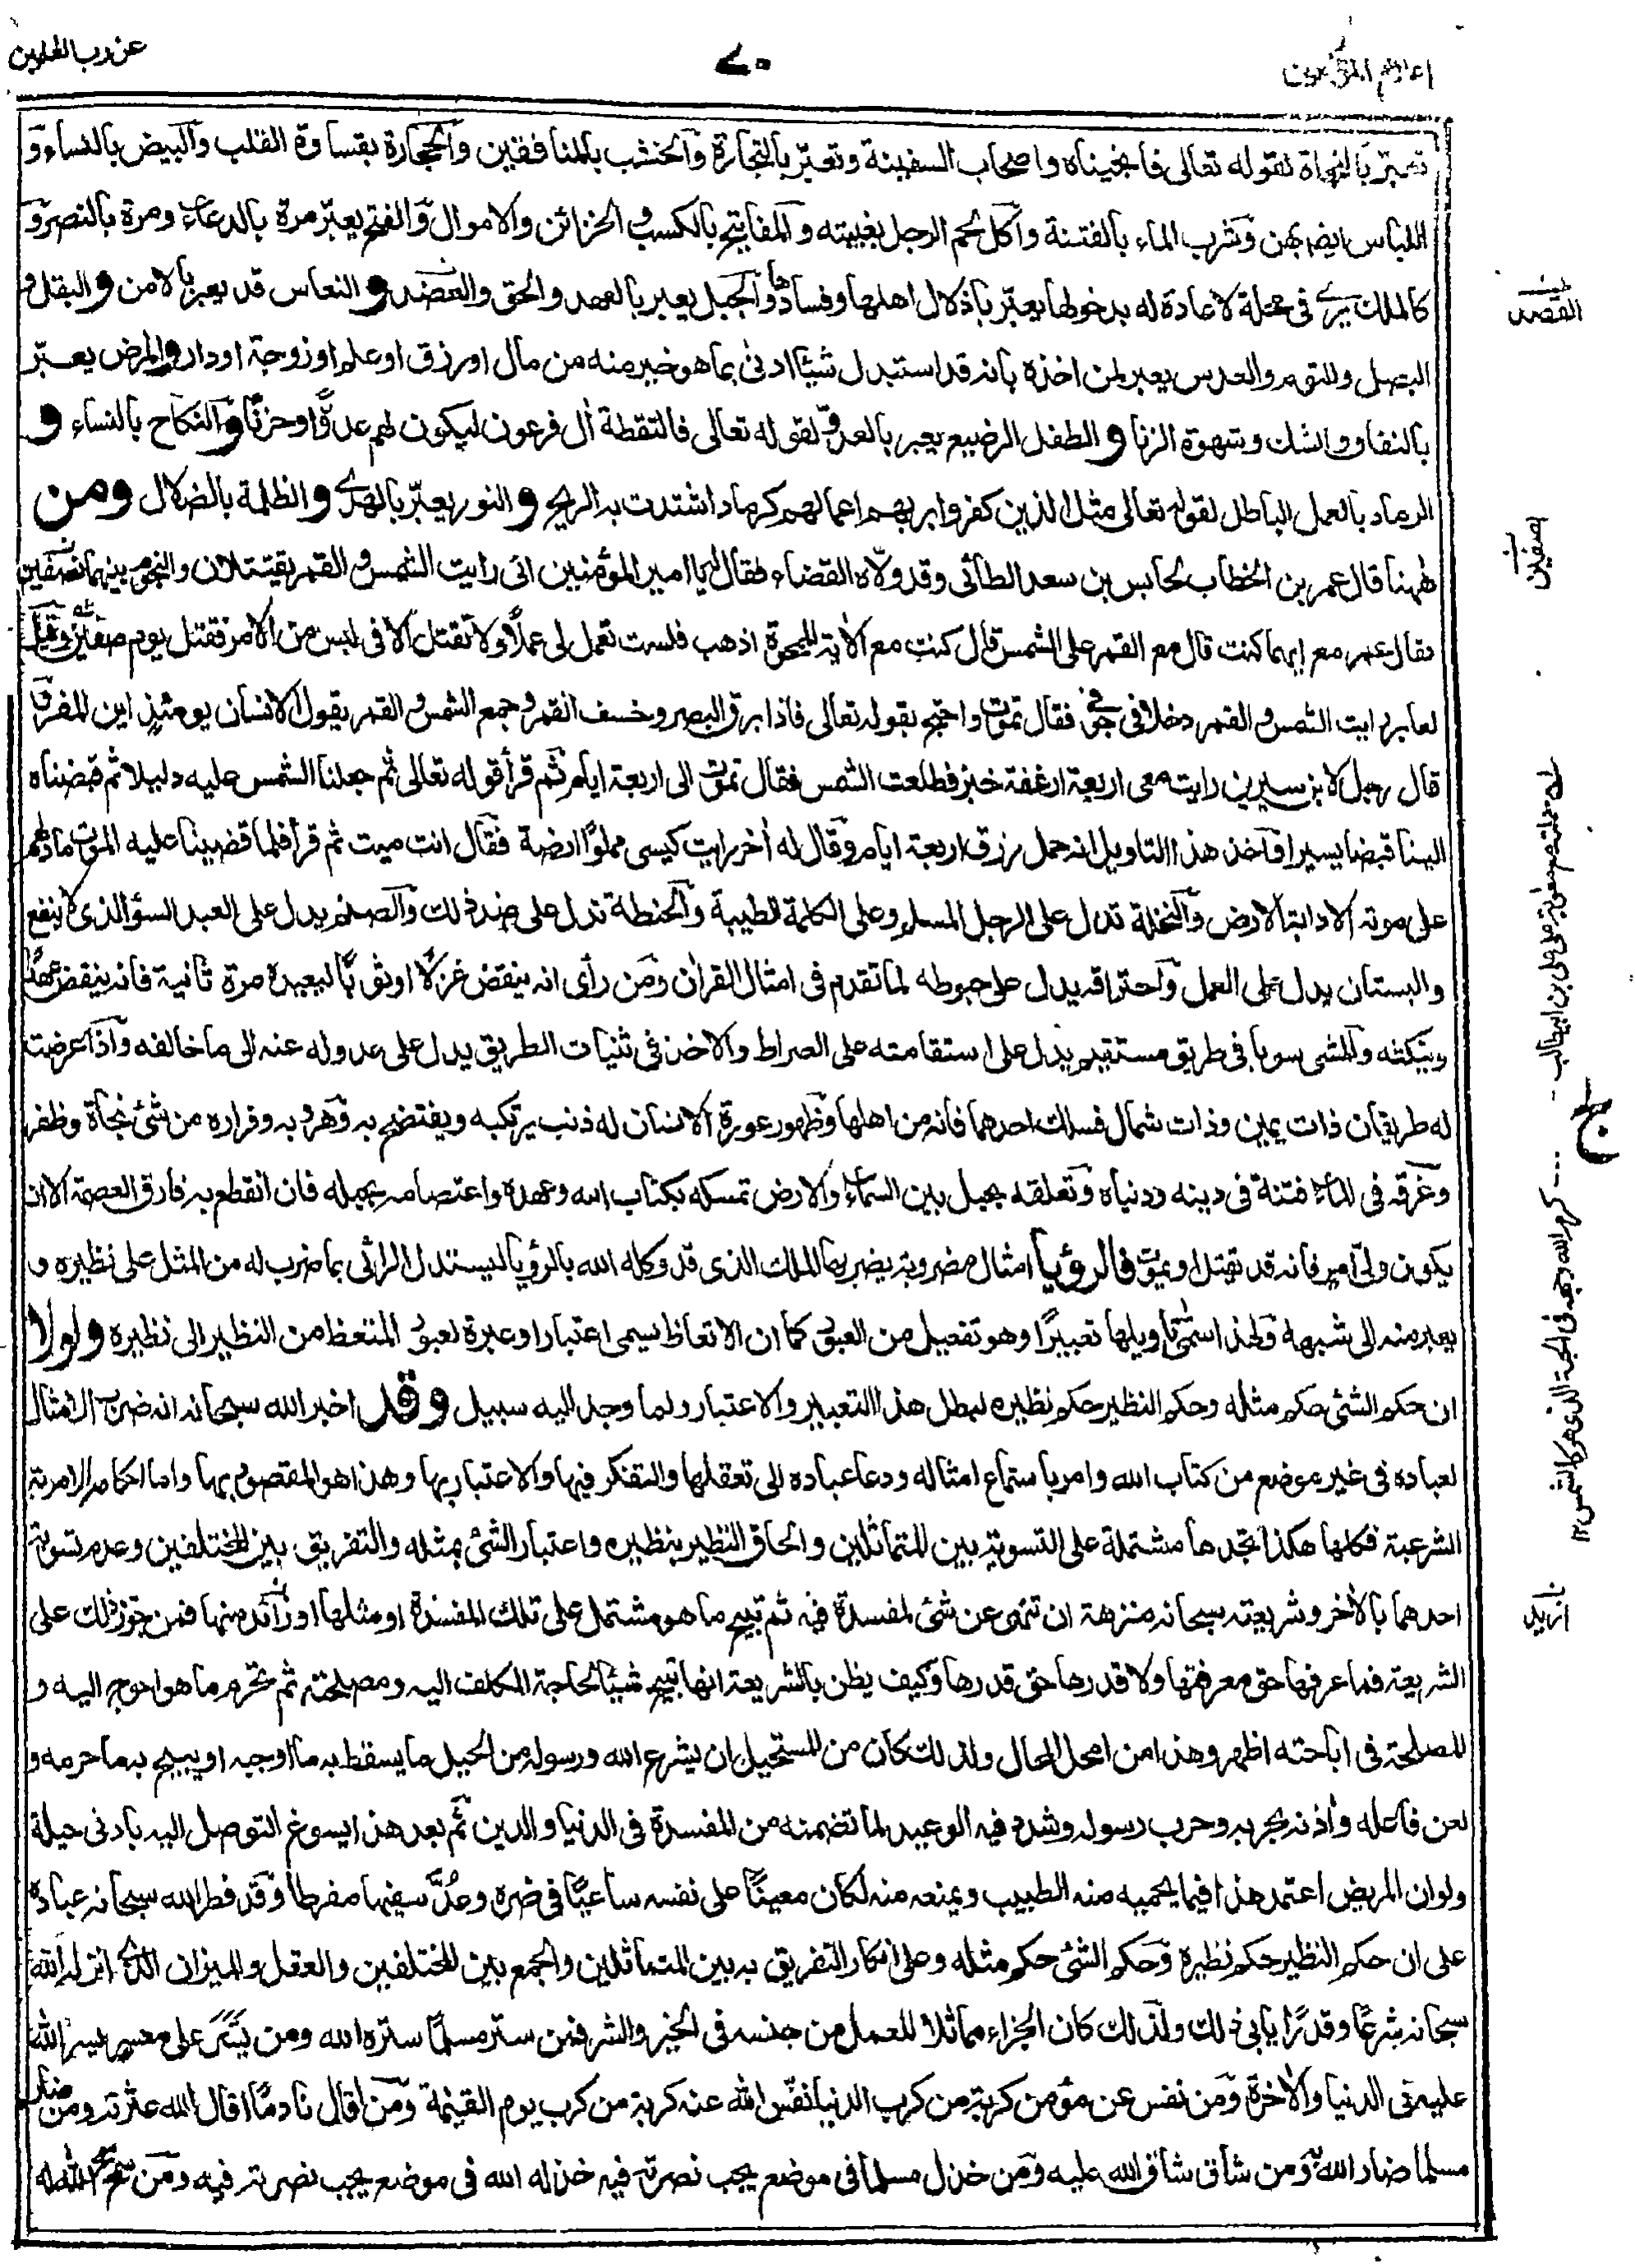 اعلام الموقعين
٧٠
عن رب العلمين
تعبر بالنجاة لقوله تعالى فانجيناه واصحاب السفينة وتعبر بالتجارة والخشب بالمنافقين والحجارة بقساوة القلب والبيض بالنساء و
اللباس ايضا بهن وشرب الماء بالفتنة واكل لحم الرجل بغيبته والمفاتيح بالكسب والخزائن والاموال والفتح يعبر مرة بالدعاء ومرة بالنصر و
كالملك يرى في محلة لا عادة له بدخولها يعبر باذلال اهلها وفسادها والحبل يعبر بالعهد والحق والعضد و النعاس قد يعبر بالامن و البقل و
البصل والثوم والعدس يعبر لمن اخذه بانه قد استبدل شيئا ادنى بما هو خير منه من مال او رزق او علم او زوجة او دار والمرض يعبر
بالنفاق والشك وشهوة الزنا و الطفل الرضيع يعبر بالعدو لقوله تعالى فالتقطه آل فرعون ليكون لهم عدوًا وحزنًا والنكاح بالنساء و
الرماد بالعمل الباطل لقوله تعالى مثل الذين كفروا بربهم اعمالهم كرماد اشتدت به الريح و النور يعبر بالهدى و الظلمة بالضلال ومن
ههنا قال عمر بن الخطاب لحابس بن سعد الطائى وقد ولاه القضاء فقال له يا امير المؤمنين انى رايت الشمس والقمر يقتتلان والنجوم بينهما نصفين
فقال عمر مع ايهما كنت قال مع القمر على الشمس قال كنت مع الآية الممحوة اذهب فلست تعمل لى عملًا ولا تقتل الا فى لبس من الامر فقتل يوم صفين وقيل
لعابر رايت الشمس والقمر دخلا فى جوفى فقال تموت واحتج بقوله تعالى فاذا برق البصر وخسف القمر وجمع الشمس والقمر يقول الانسان يومئذ اين المفر و
قال رجل لابن سيرين رايت معى اربعة ارغفة خبز فطلعت الشمس فقال تموت الى اربعة ايام ثم قرأ قوله تعالى ثم جعلنا الشمس عليه دليلا ثم قبضناه
الينا قبضا يسيرا وآخذ هذا التاويل انه حمل رزق اربعة ايام وقال له آخر رايت كيسى مملوًا ارضة فقال انت ميت ثم قرأ فلما قضينا عليه الموت ما دلهم
على موته الا دابة الارض والنخلة تدل على الرجل المسلم وعلى الكلمة الطيبة والحنظلة تدل على ضد ذلك والصنم يدل على العبد السوء الذى لا ينفع
والبستان يدل على العمل واحتراقه يدل على حبوطه لما تقدم فى امثال القرآن ومن رأى انه ينقض غزلًا او ثوبًا ليعيده مرة ثانية فانه ينقض عهدًا
وينكثه والمشى سويا فى طريق مستقيم يدل على استقامته على الصراط والاخذ فى ثنيات الطريق يدل على عدوله عنه الى ما خالفه واذا عرضت
له طريقان ذات يمين وذات شمال فسلك احدهما فانه من اهلها وظهور عورة الانسان له ذنب يرتكبه ويفتضح به وهروبه وفراره من شئ نجاة وظفر
وغرقه فى الماء فتنة فى دينه ودنياه وتعلقه بحبل بين السماء والارض تمسكه بكتاب الله وعهده واعتصامه بحبله فان انقطع به فارق العصمة الا ان
يكون ولى امر فانه قد يقتل او يموت فالرؤيا امثال مضروبة يضربها الملك الذى قد وكله الله بالرؤيا ليستدل الرائى بما ضرب له من المثل على نظيره و
يعبر منه الى شبهه ولهذا سمى تاويلها تعبيرًا وهو تفعيل من العبور كما ان الاتعاظ يسمى اعتبارا وعبرة لعبور المتعظ من النظير الى نظيره ولولا
ان حكم الشئ حكم مثله وحكم النظير حكم نظيره لبطل هذا التعبير والاعتبار ولما وجد اليه سبيل وقد اخبر الله سبحانه انه ضرب الامثال
لعباده فى غير موضع من كتاب الله وامر باستماع امثاله ودعا عباده الى تعقلها والتفكر فيها والاعتبار بها وهذا هو المقصود بها واما احكامه الامرية
الشرعية فكلها هكذا تجدها مشتملة على التسوية بين المتماثلين والحاق النظير بنظيره واعتبار الشئ بمثله والتفريق بين المختلفين وعدم تسوية
احدهما بالآخر وشريعته سبحانه منزهة ان تنهى عن شئ لمفسدة فيه ثم تبيح ما هو مشتمل على تلك المفسدة او مثلها او زائد منها فمن جوز ذلك على
الشريعة فما عرفها حق معرفتها ولا قدرها حق قدرها وكيف يظن بالشريعة انها تبيح شيئًا لحاجة المكلف اليه ومصلحته ثم تحرم ما هو احوج اليه و
المصلحة فى اباحته اظهر وهذا من امحل المحال ولذلك كان من المستحيل ان يشرع الله ورسوله من الحيل ما يسقط به ما اوجبه او يبيح به ما حرمه و
لعن فاعله وآذنه بحربه وحرب رسوله وشدد فيه الوعيد لما تضمنه من المفسدة فى الدنيا والدين ثم بعد هذا يسوغ التوصل اليه بادنى حيلة
ولو ان المريض اعتمد هذا فيما يحميه منه الطبيب ويمنعه منه لكان معينًا على نفسه ساعيًا فى ضره وعُدَّ سفيها مفرطا وقد فطر الله سبحانه عباده
على ان حكم النظير حكم نظيره وحكم الشئ حكم مثله وعلى انكار التفريق به بين المتماثلين والجمع بين المختلفين والعقل والميزان الذى انزله الله
سبحانه شرعًا وقدرًا يابى ذلك ولذلك كان الجزاء مماثلا للعمل من جنسه فى الخير والشر فمن ستر مسلمًا ستره الله ومن يسر على معسر يسر الله
عليه فى الدنيا والآخرة ومن نفس عن مؤمن كربة من كرب الدنيا نفس الله عنه كربة من كرب يوم القيمة ومن اقال نادمًا اقال الله عثرته ومن ضار
مسلما ضار الله به ومن شاق شاق الله عليه ومن خذل مسلما فى موضع يجب نصرته فيه خذله الله فى موضع يجب نصرته فيه ومن سمح سمح الله له
نصفين
كرم الله وجهه فى الجنة الذى هو كالشمس ١٢
ازيد